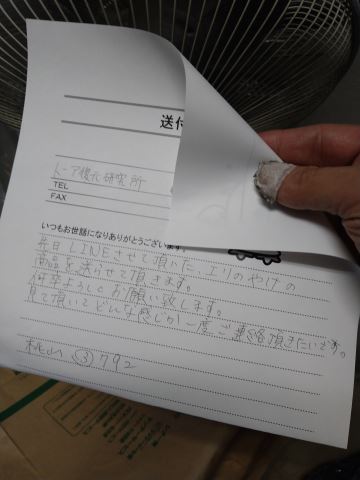 送付
トーア復元研究所
TEL
FAX
いつもお世話になりありがとうございます。
先日LINEさせて頂いた、エリのやけの
商品を送らせて頂きます。
何卒よろしくお願い致します。
見て頂いてどんな感じか一度ご連絡頂きたいです。
③792